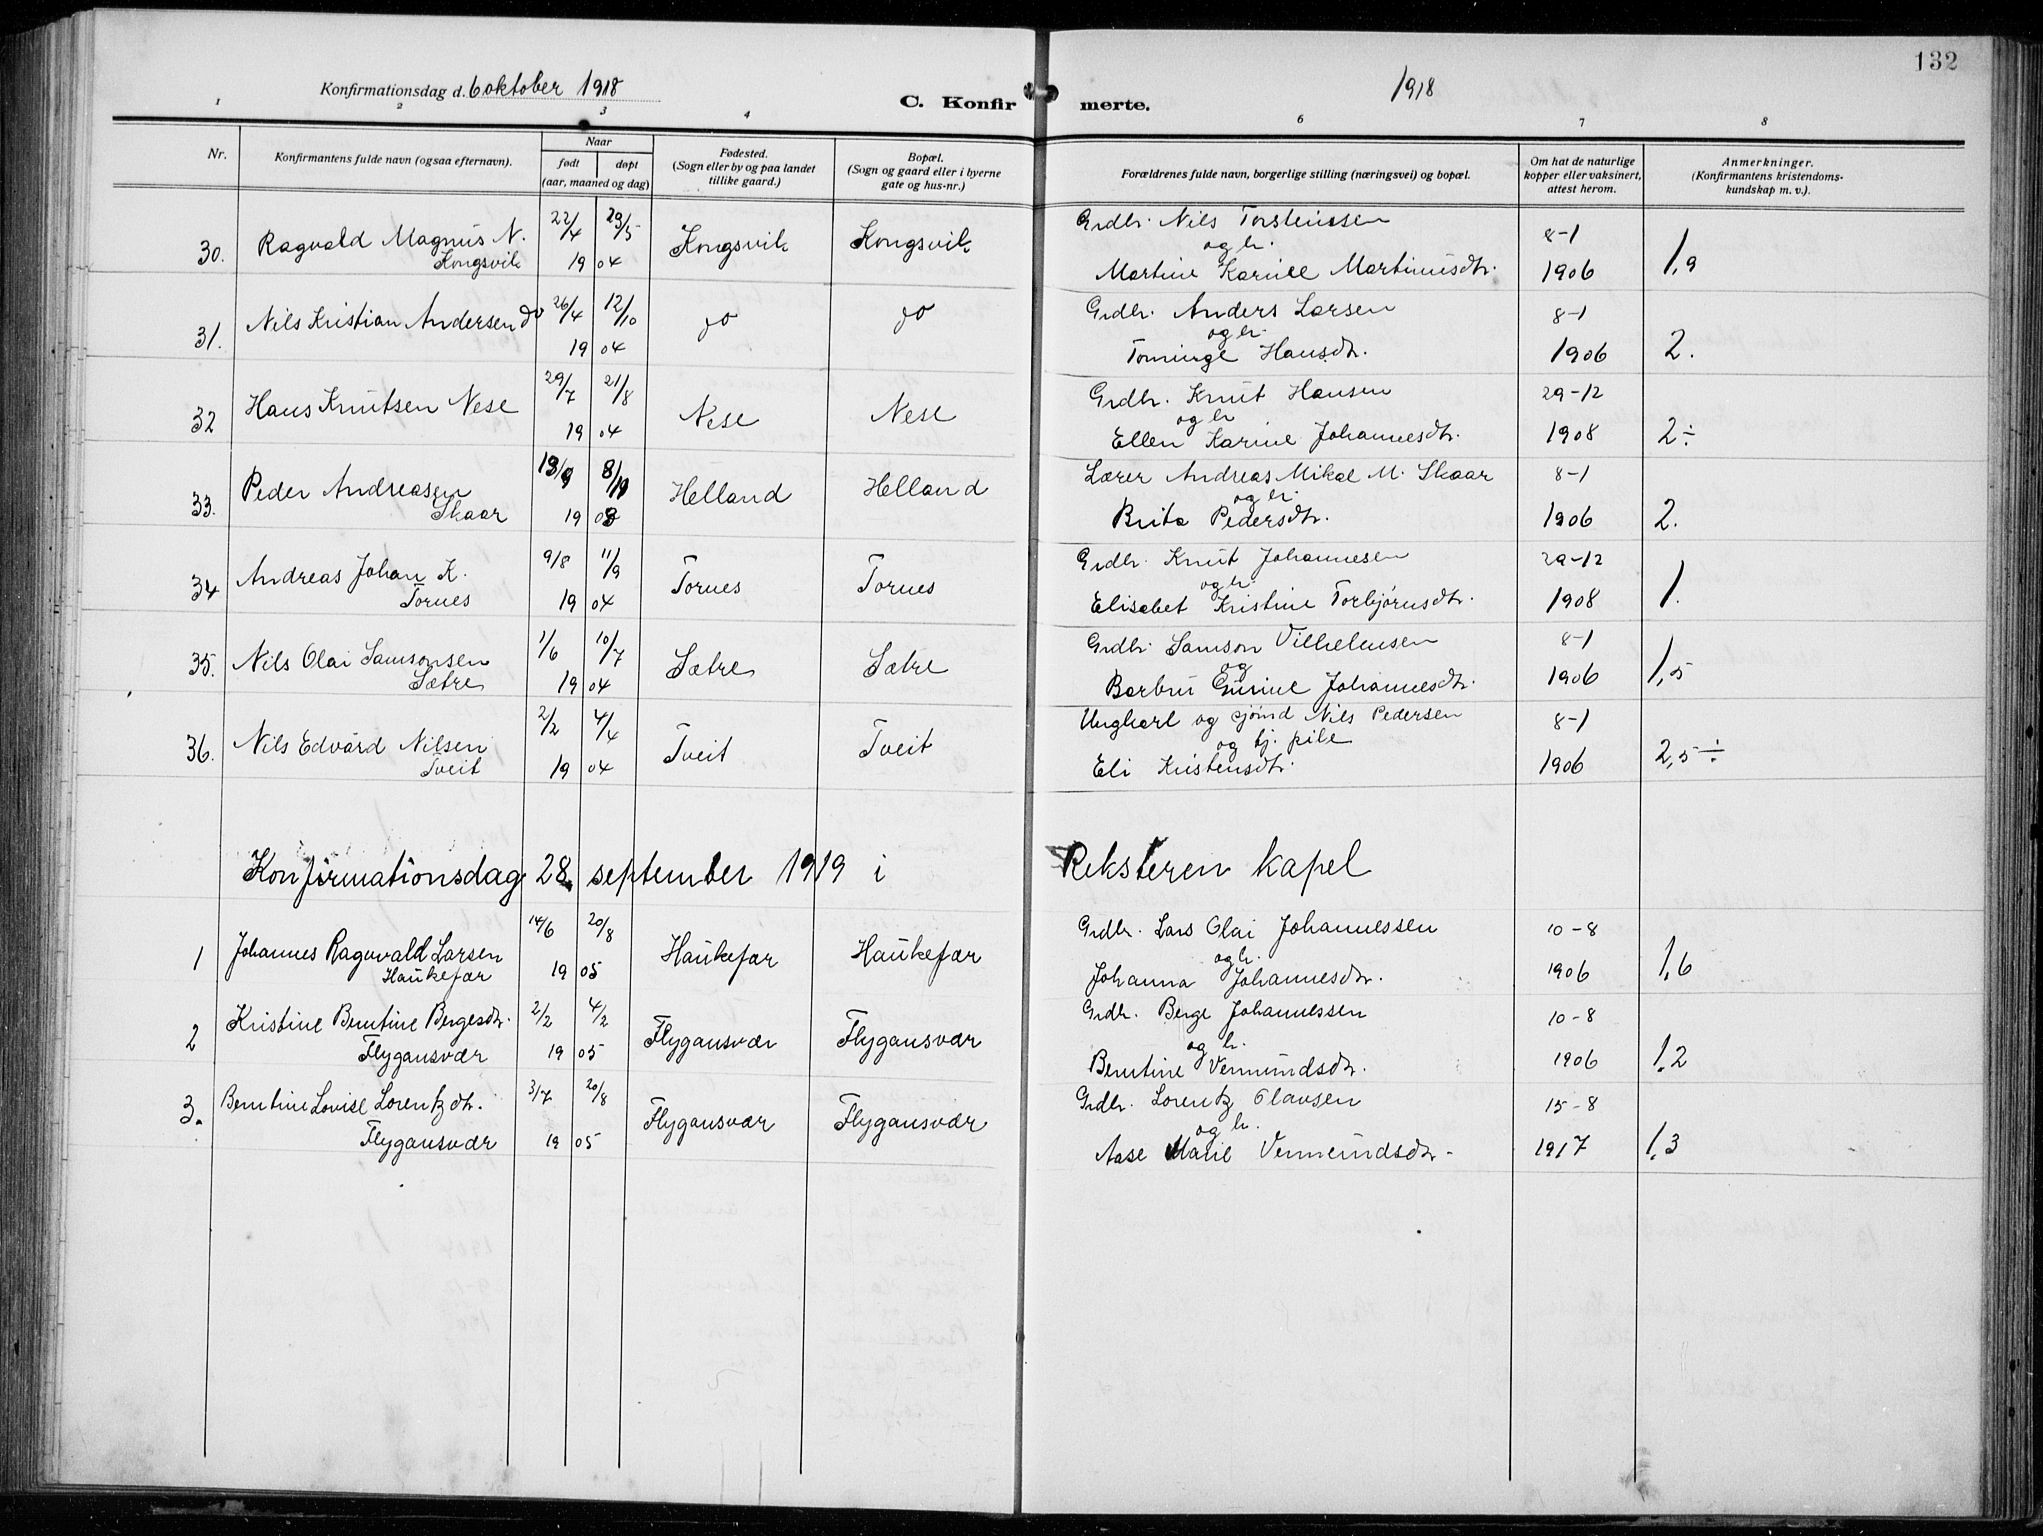 132
Konfirmationsdag d. 6 oktober 1918
1918
C. Konfirmerte.
1 2 3 4 6 7 8
Nr.
Konfirmantens fulde navn (ogsaa efternavn).
Naar
født døpt
(aar, maaned og dag)
Fødested.
(Sogn eller by og paa landet
tillike gaard.)
Bopæl.
(Sogn og gaard eller i byerne
gate og hus-nr.)
Forældrenes fulde navn, borgerlige stilling (næringsvei) og bopæl.
Om hat de naturlige
kopper eller vaksinert,
attest herom.
Anmerkninger.
(Konfirmantens kristendoms-
kundskap m. v.).
30. Ragvald Magnus N. 22/4 29/5 Kongsvik Kongsvik Grdbr. Nils Torsteinssen 8-1 1,9
Kongsvik 19 04 og h. Martine Karine Martinusdtr. 1906
31. Nils Kristian Andersen do 26/4 12/10 do do Grdbr. Anders Larsen 8-1 2.
19 04 og h. Hansdtr. 1906
32 Hans Knutsen Nese 29/7 21/8 Nese Nese Grdbr. Knut Hansen 29-12 2÷
19 04 og h. Ellen Karine Johannesdtr. 1908
33. Peder Andreasen Helland Helland Lærer Andreas Mikal M. Skaar 8-1 2.
Skaar 19 03 og h. Brita Pedersdtr. 1906
34 Andreas Johan K. 9/8 11/9 Tornes Tornes Grdbr. Knut Johannesen 29-12 1.
Tornes 19 04 og h. Elisabet Kristine Torbjørnsdtr. 1908
35. Nils Olai Samsonsen 1/6 10/7 Sætre Sætre Grdbr. Samson Vilhelmsen 8-1 1,5
Sætre 19 04 og Barbru Gurine Johannesdtr. 1906
36. Nils Edvard Nilsen 2/2 4/4 Tveit Tveit Ungkarl og sjømd Nils Pedersen 8-1 2,5÷
Tveit 19 04 og tj. pike Eli Kristensdtr. 1906
Konfirmationsdag 28. september 1919 i Reksteren kapel
1 Johannes Ragnvald Larsen 14/6 20/8 Haukefær Haukefær Grdbr. Lars Olai Johannessen 10-8 1,6
Haukefær 19 05 og h. Johanna Johannesdtr. 1906
2 Kristine Berntine Bergesdtr. 2/2 4/2 Flygansvær Flygansvær Grdbr. Berge Johannessen 10-8 1.2
Flygansvær 19 05 og h. Berntine Vermundsdtr. 1906
3. Berntine Lovise Lorentzdtr. 3/7 20/8 Flygansvær Flygansvær Grdbr. Lorentz Olausen 15-8 1.3
Flygansvær 19 05 og h. Aase Marie Vermundsdtr. 1917